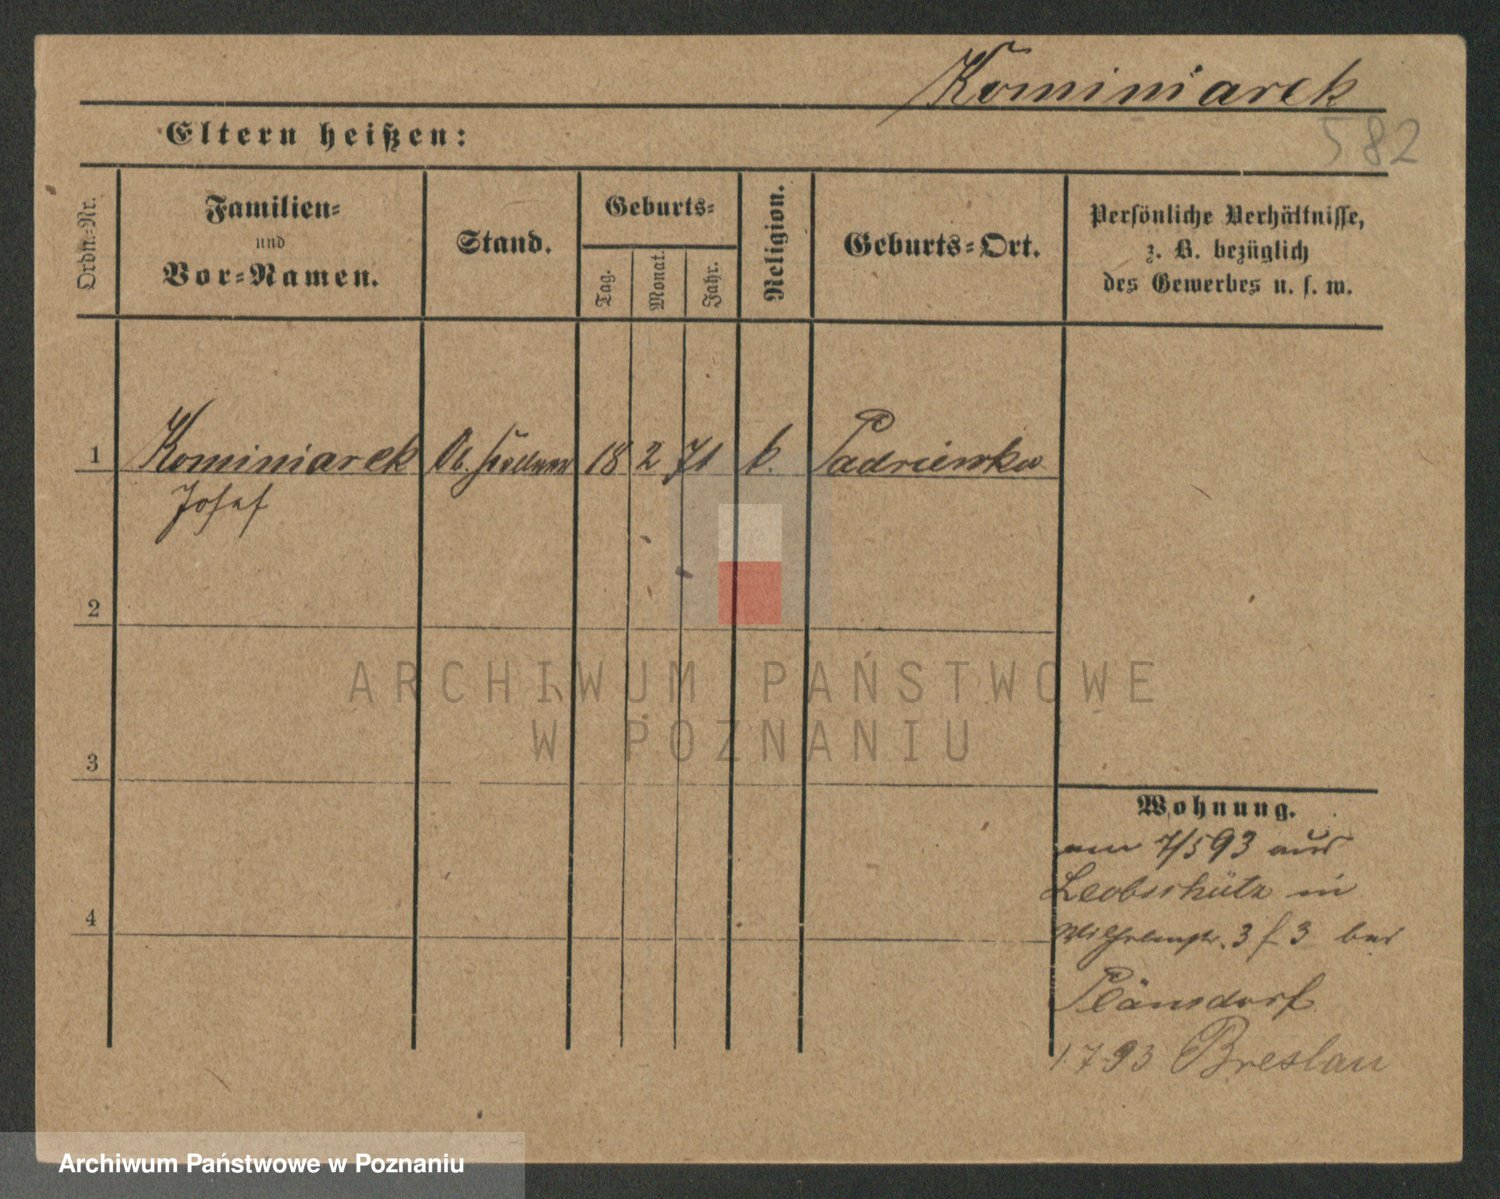 Kominiarek
582
Eltern heißen:
Ordn.-Nr.
Familien-
und
Vor-Namen.
Stand.
Geburts-
Tag.
Monat.
Jahr.
Religion.
Geburts-Ort.
Persönliche Verhältnisse,
z. B. bezüglich
des Gewerbes u. s. w.
1 Kominiarek 18 2 71 k.
Josef
2
3
4
Wohnung.
am 7/5 93 aus
Leobschütz in
3 f 3 bei
Plänsdorf
1 7 93 Breslau
ARCHIWUM PAŃSTWOWE
W POZNANIU
Archiwum Państwowe w Poznaniu